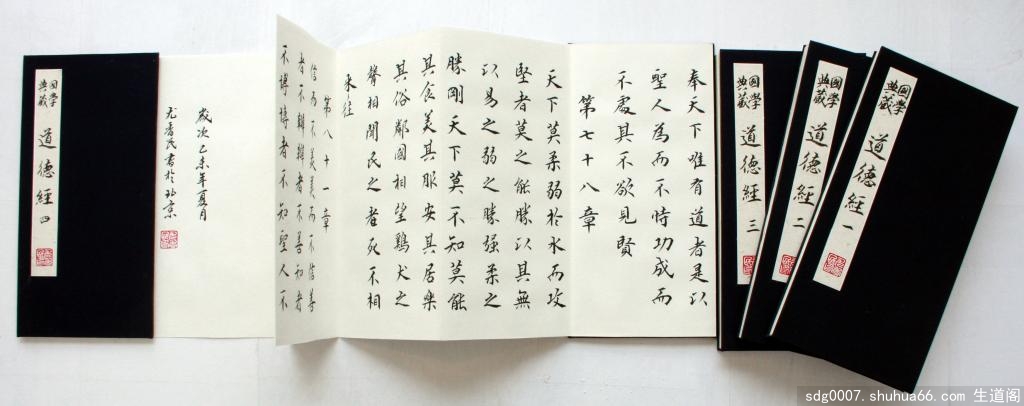 國學典藏 道德經 一
國學典藏 道德經 二
國學典藏 道德經 三
奉天下唯有道者是以
聖人為而不恃功成而
不處其不欲見賢
第七十八章
天下莫柔弱於水而攻
堅者莫之能勝以其無
以易之弱之勝强柔之
勝剛天下莫不知莫能
其食美其服安其居樂
其俗鄰國相望鷄犬之
聲相聞民之者死不相
來往
第八十一章
信而不美美而不信善
者不辯辯者不善知者
不博博者不知聖人不
歲次乙未年夏月
氏書於北京
國學典藏 道德經 四
sdg0007.shuhua66.com 生道阁